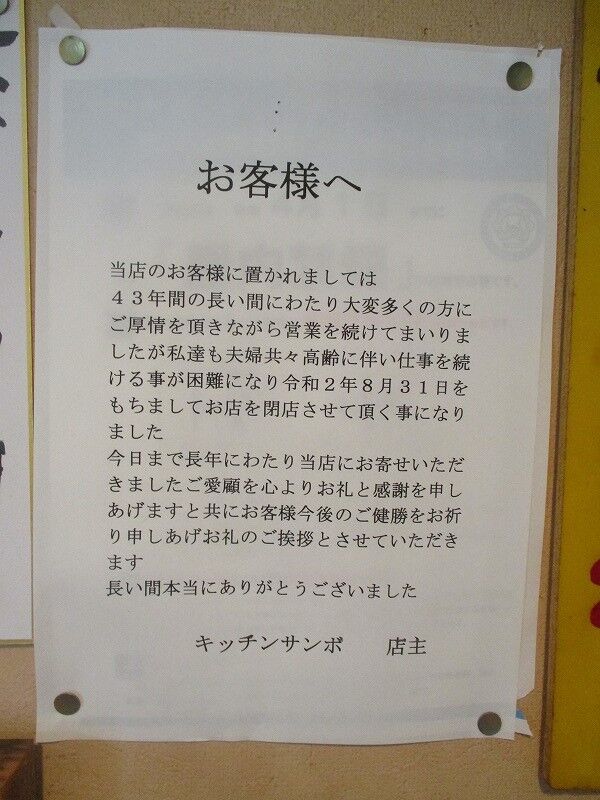 お客様へ
当店のお客様に置かれましては
４３年間の長い間にわたり大変多くの方に
ご厚情を頂きながら営業を続けてまいりま
したが私達も夫婦共々高齢に伴い仕事を続
ける事が困難になり令和２年８月３１日を
もちましてお店を閉店させて頂く事になり
ました
今日まで長年にわたり当店にお寄せいただ
きましたご愛顧を心よりお礼と感謝を申し
あげますと共にお客様今後のご健勝をお祈
り申しあげお礼のご挨拶とさせていただき
ます
長い間本当にありがとうございました
キッチンサンボ　　店主